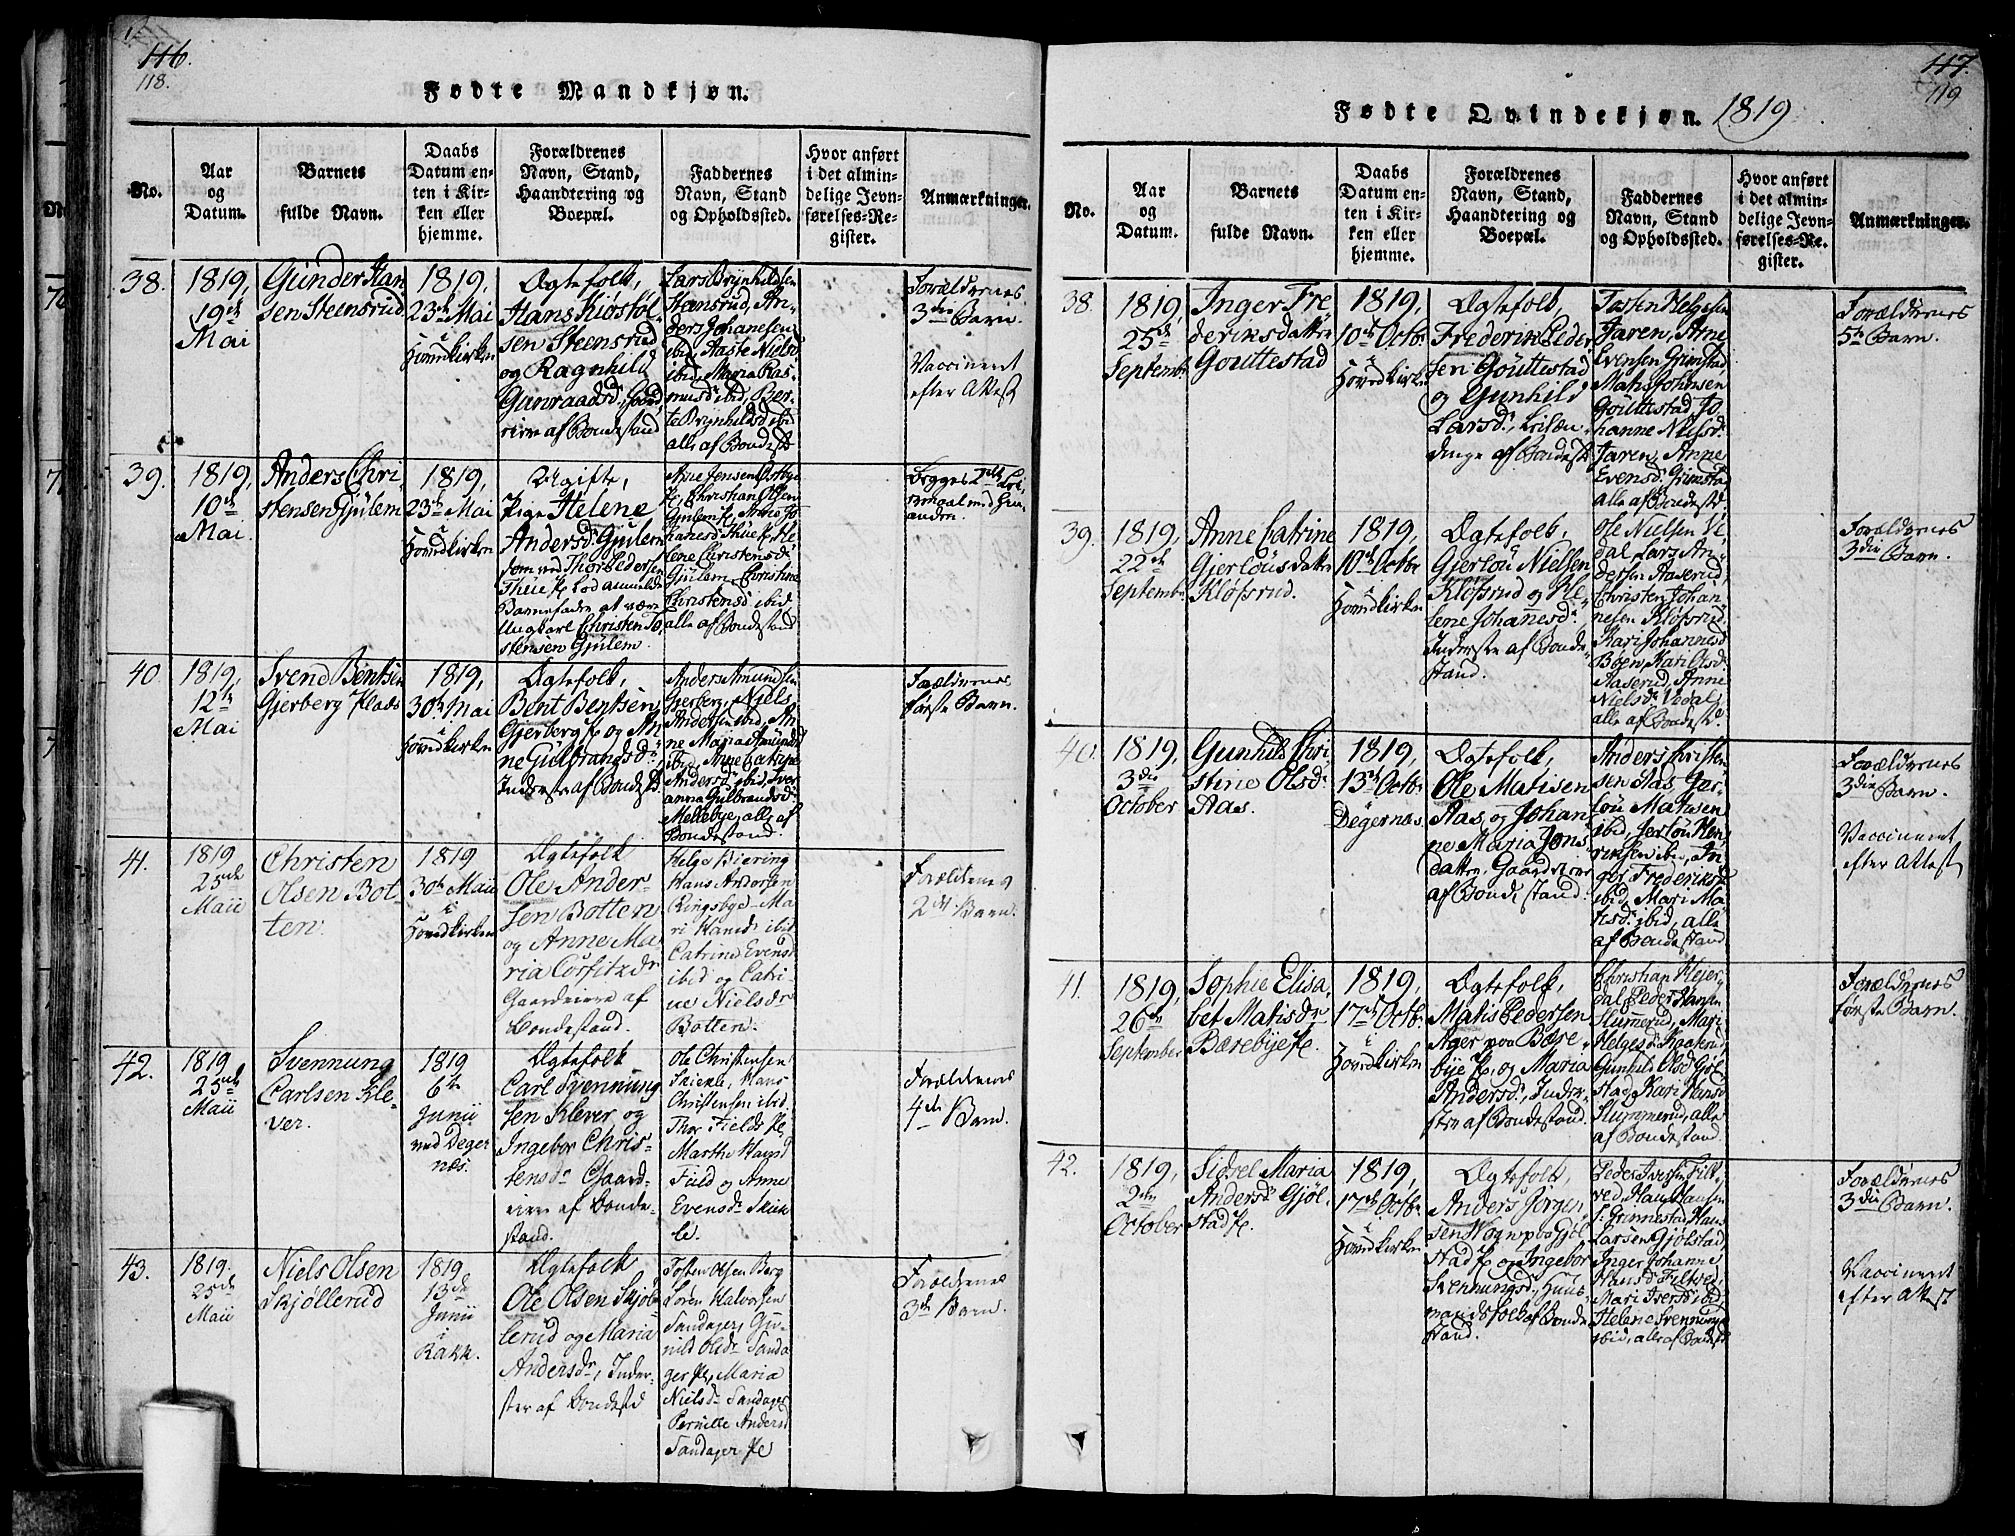 116.
118.
Fødte Mandkjøn.
No.
Aar
og
Datum.
Barnets
fulde Navn.
Daabs
Datum en-
ten i Kir-
ken eller
hjemme.
Forældrenes
Navn, Stand,
Haandtering og
Boepæl.
Faddernes
Navn, Stand
og Opholdssted.
Hvor anført
i det almin-
delige Jevn-
førelses-Re-
gister.
Anmærkninger.
38.
1819,
19de
Mai
Gunder Han
sen Steensrud
1819,
23de Mai
i
Hovedkirken
Ægtefolk,
Hans Kiostol-
sen Steensrud
og Ragnhild
Gunraadsd.
af Bondestand
Lars Brynhildsen
Hansrud, An-
ders Johanesen
ibid, Aaste Nielsd
ibid, Maria Ras-
musd ibid, Ber-
te Brynhildsd ibid
alle af Bondest
Forældrenes
3die Barn.
Vaccineret
efter Attest
39.
1819,
10de
Mai
Anders Chri
stensen Gjulem
1819,
23de Mai
i
Hovedkirken
Ugifte,
Pige Helene
Andersd. Gjulem
som ved Thor Pedersen
Thüe lod anmelde
Barnefader at være
Ungkarl Christen To-
stensen Gjulem.
Arne Jensen
Christian Olsen
Gjulem Anne Jo-
hanesd Thüe He-
lene Christensd
Gjulem, Christine
Christensd ibid
alle af Bondestand
Begges
med hin-
anden.
40
1819,
12te
Mai
Svend Bentsen
Gjerberg Plads
1819,
30te Mai
i
Hovedkirken
Ægtefolk,
Bent Bentsen
Gjerberg og An-
ne Gulbrandsd.
Inderste af Bondest
Anders Amundsen
Gjerberg, Niels
Andersen ibid, An-
ne Maria Amundsd
ibid, Anne Catrine
Andersd ibid, Sver
anna Gulbrandsd
Mellebye, alle af
Bondestand.
Forældrenes
første Barn.
41.
1819
25de
Maii
Christen
Olsen Bot-
ten.
1819
30te Maii
i
Hovedkirken
Ægtefolk
Ole Ander-
sen Botten
og Anne Ma-
ria Corfitzdr
Gaardeiere af
Bondestand.
Helge Biering
Hans Andersen
Ringsbye Ma-
ri Hansdr ibid
Catrine Evensd
ibid og Catri-
ne Nielsdr
Botten.
Forældrenes
2det Barn.
42.
1819
25de
Maii
Svennung
Carlsen Kle-
ver.
1819
6te
Junii
ved Deger
næs.
Ægtefolk
Carl Svennung
sen Klever og
Ingebor Chris-
tensdr Gaard-
eiere af Bonde-
stand.
Ole Christensen
Skiekle, Hans
Christensen ibid
Thor Fields
Marthe Hansd
Field og Anne
Evensdr Skiek-
le.
Forældrenes
4de Barn.
43.
1819.
25de
Maii
Niels Olsen
Skjøllerud
1819
13de
Junii
i
Rakk.
Ægtefolk
Ole Olsen Skjøl-
lerud og Maria
Andersdr, Inder-
ster af Bondestd
Tosten Olsen Berg
Søren Halvorsen
Sandager, Gu-
nild Olsdr Sanda
ger Maria
Nielsdr Sandager
Pernille Andersd
Sandager
Forældrenes
3de Barn.
117.
119
Fødte Qvindekjøn. 1819
No.
Aar
og
Datum.
Barnets
fulde Navn.
Daabs
Datum en-
ten i Kir-
ken eller
hjemme.
Forældrenes
Navn, Stand,
Haandtering og
Boepæl.
Faddernes
Navn, Stand
og Opholdssted.
Hvor anført
i det almin-
delige Jevn-
førelses-Re-
gister.
Anmærkninger.
38.
1819,
25de
Septembr
Inger Fre
deriksdatter
Gouttestad
1819,
10de Octbr
i
Hovedkirken
Ægtefolk,
Frederik Peder
sen Gouttestad
og Gunhild
Larsd.
af Bondestd
Tosten Helgesen
Jaren, Arne
Evensen Grimstad
Matis Johansen
Gouttestad, Jo-
hanne Nielsd.
Jaren, Anne
Evensd. Grimstad
alle af Bondestd.
Forældrenes
5te Barn.
39.
1819,
22de
Septembr
Anne Catrine
Gjerlousdatter
Kløfsrud.
1819,
10de Octbr
i
Hovedkirken
Ægtefolk.
Gjerlou Nielsen
Kløfsrud og He-
lene Johanesd.
Inderste af Bonde-
stand.
Ole Nielsen Ve-
dal, Lars An-
dersen Aaserud,
Christen Johan-
nesen Kløfsrud,
Kari Johannesd
Boen, Kari Olsd.
Aaserud, Anne
Nielsd. Vedal,
alle af Bondestd.
Forældrenes
3die Barn.
40.
1819,
3die
October
Gunhild Chri-
stine Olsd.
Aas.
1819,
13de Octbr
Degernæs.
Ægtefolk,
Ole Matisen
Aas, og Johan-
ne Maria Jons-
datter, Gaardeiere
af Bondestand.
Anders Christen
sen Aas, Gjer-
lou Matisen
ibid, Jerlou Hen-
riksen ibid, In-
ger Frederiksd
ibid, Mari Ma-
tisd. ibid, alle
af Bondestand
Forældrenes
3die Barn.
Vaccineret
efter Attest
41.
1819,
26de
September
Sophie Elisa,
bet Matisdr
Bærebye
1819,
17de Octbr
i
Hovedkirken
Ægtefolk,
Matis Pedersen
Ager paa Bære-
bye og Maria
Andersd., Inder-
ste af Bondestand.
Christian Hejer-
dal, Peder Hansen
Slummerud, Mari
Helgesd. Kaaterud
Gunhild Olsd Gjøl-
stad, Kari Hansd
Slummerud, alle
af Bondestand.
Forældrenes
første Barn.
42.
1819,
2den
October
Sidsel Maria
Andersd. Gjøl-
stad
1819,
17de Octbr
i
Hovedkirken
Ægtefolk,
Anders Jørgen-
sen Wogn paa Gjøl-
stad og Ingebor
Svennungsd., Huus-
mandsfolk af Bonde
stand.
Peder Iversen Filt-
ved, Hans Hansen
Grinnestad, Hans
Larsen Gjølstad,
Inger Johanne
Hansd. Filtved,
Mari Iversd ibid
Helene Svennungsd
ibid, alle af Bondest
Forældrenes
3die Barn.
Vaccineret
efter Attest